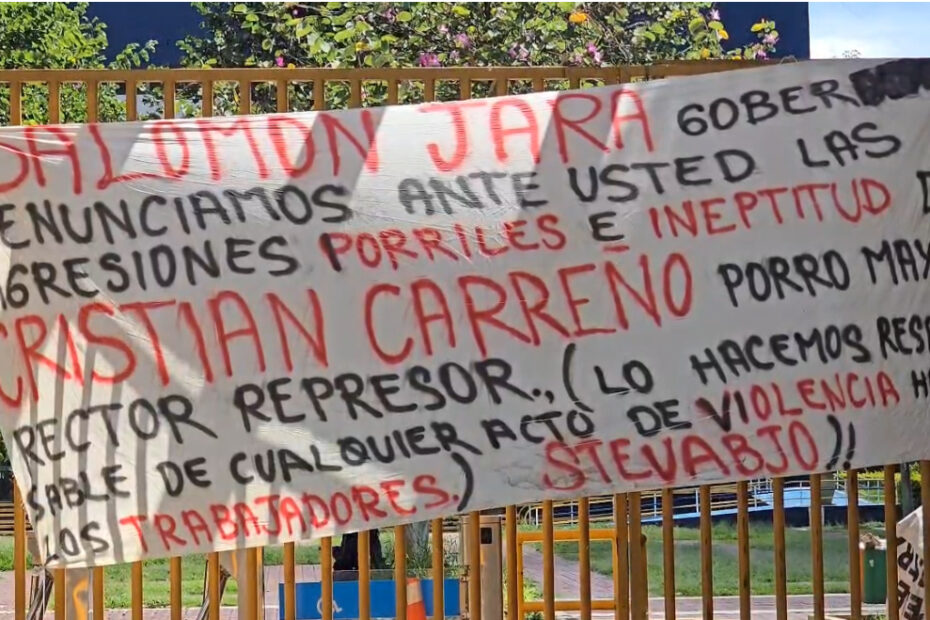 SALOMON JARA GOBER
ENUNCIAMOS ANTE USTED LAS
AGRESIONES PORRILES E INEPTITUD D
CRISTIAN CARREÑO PORRO MAY
RECTOR REPRESOR., (LO HACEMOS RESP
SABLE DE CUALQUIER ACTO DE VIOLENCIA H
LOS TRABAJADORES.) STEUABJO)!